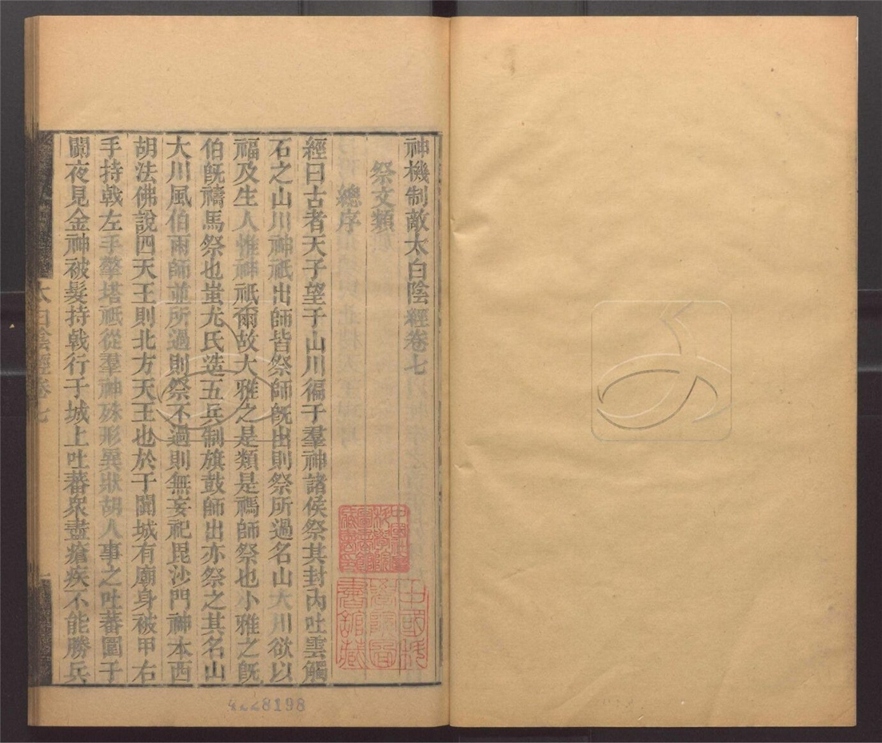 神機制敵太白陰經卷七
祭文類
總序
經曰古者天子望于山川徧于羣神諸侯祭其封內吐雲觸
石之山川神祇出師皆祭師旣出則祭所過名山大川欲以
福及生人惟神祇爾故大雅之是類是禡師祭也小雅之旣
伯旣禱馬祭也蚩尤氏造五兵制旗鼓師出亦祭之其名山
大川風伯雨師並所過則祭不過則無妄祀毘沙門神本西
胡法佛說四天王則北方天王也於于闐城有廟身被甲右
手持戟左手擎塔祇從羣神殊形異狀胡人事之吐蕃圍于
闐夜見金神被髮持戟行于城上吐蕃衆盡瘡疾不能勝兵
太白陰經卷七
一
4228198